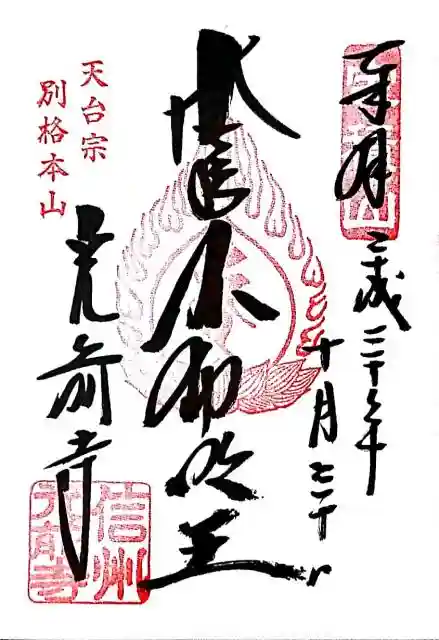 奉拝
平成二十七年
十月二十日
不動明王
天台宗
別格本山
光前寺
信州
光前寺